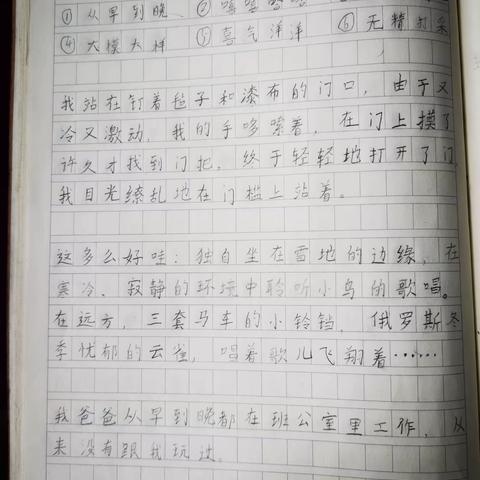 ①从早到晚、②嘻嘻
④大模大样 ⑤喜气洋洋 ⑥无精打采
我站在钉着毡子和漆布的门口，由于又
冷又激动，我的手哆嗦着，在门上摸了
许久才找到门把，终于轻轻地打开了门
我目光缭乱地在门槛上站着。
这多么好哇：独自坐在雪地的边缘，在
寒冷、寂静的环境中聆听小鸟的歌唱。
在远方，三套马车的小铃铛，俄罗斯冬
季忧郁的云雀，唱着歌儿飞翔着……
我爸爸从早到晚都在班公室里工作，从
来没有跟我玩过。